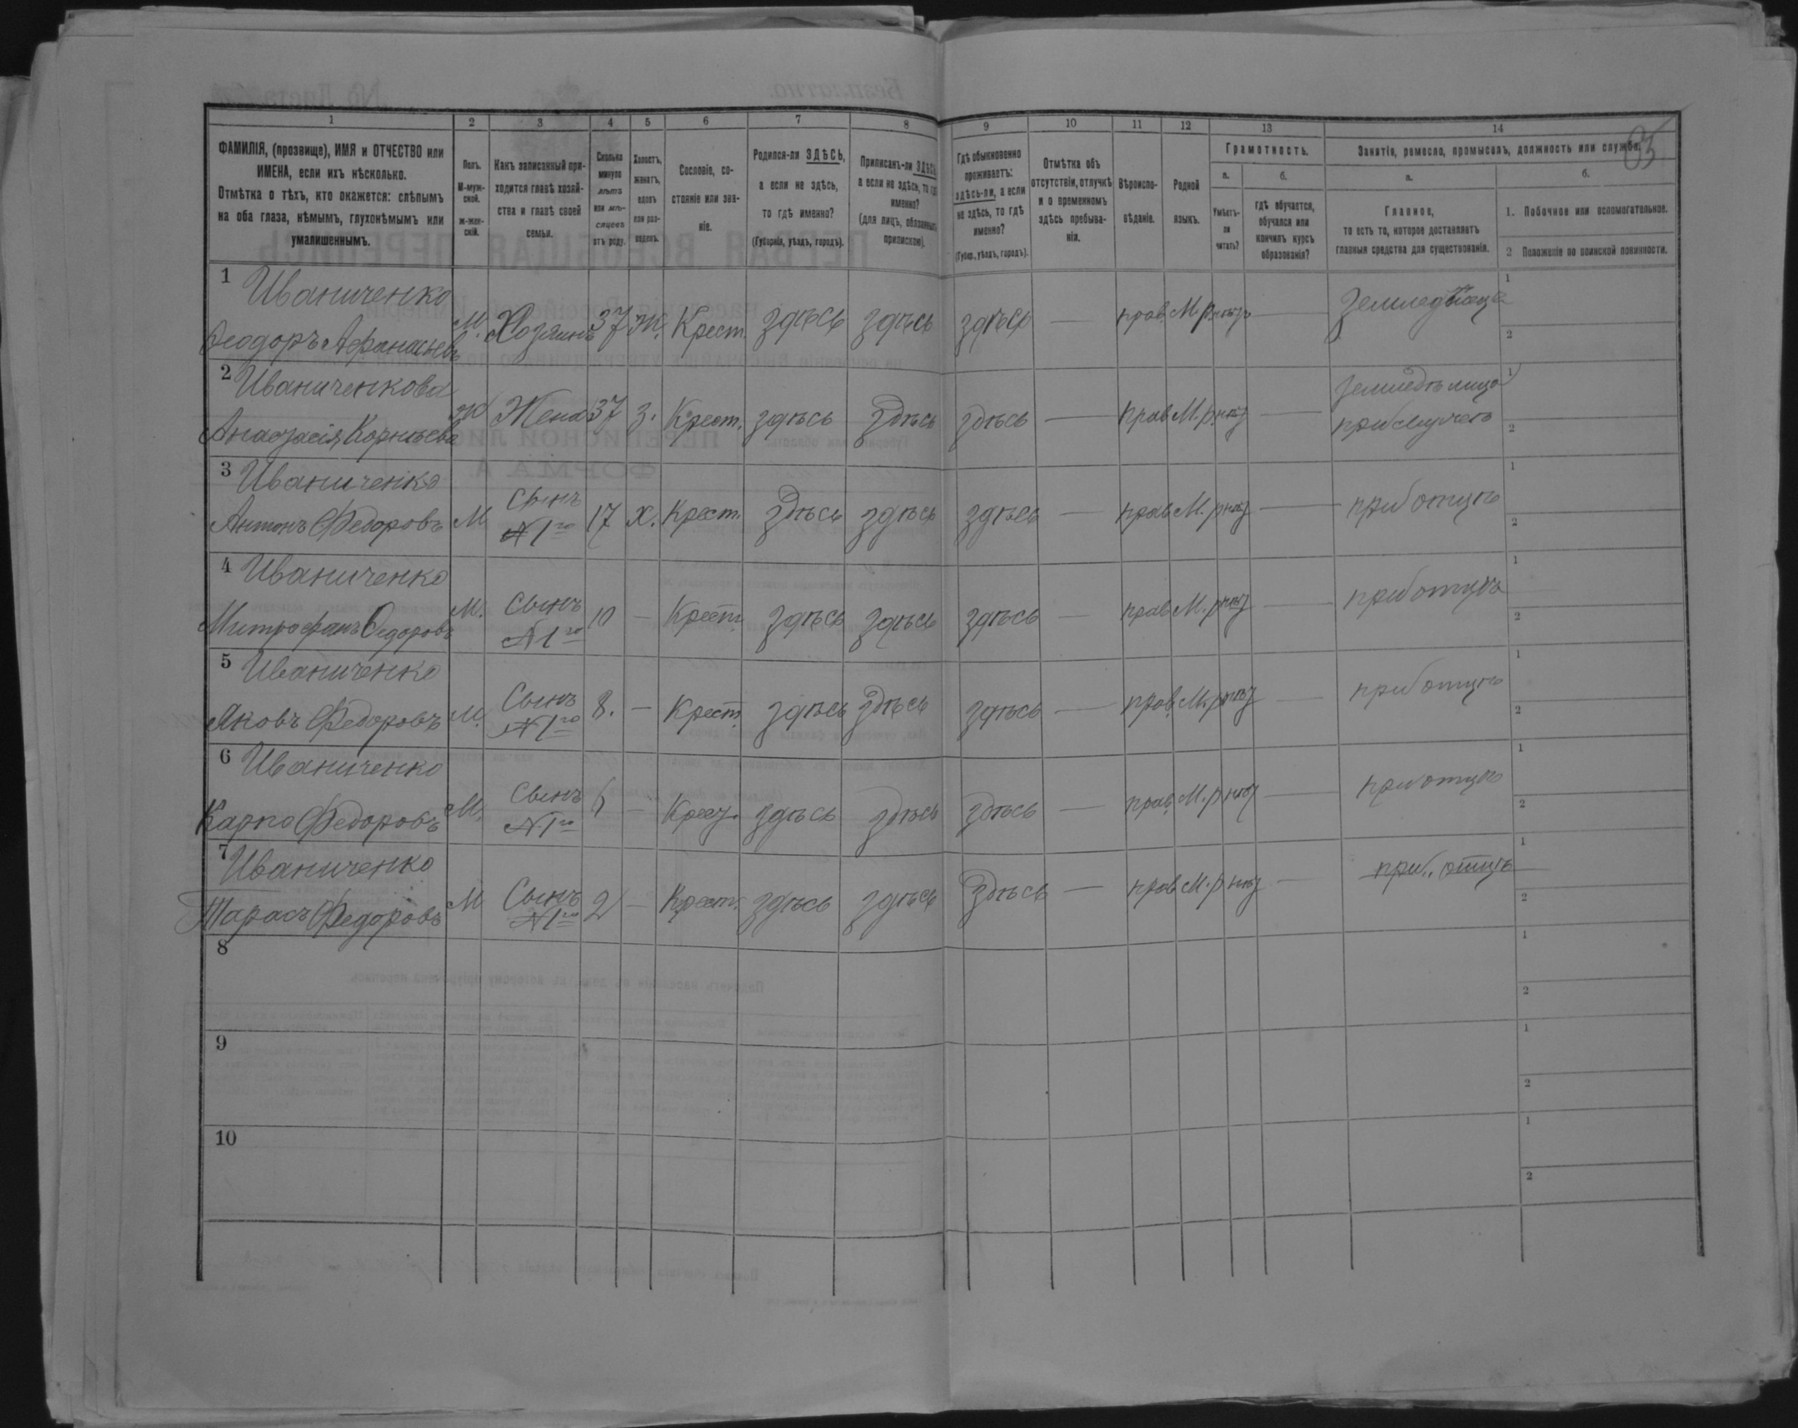 1 2 3 4 5 6 7 8 9 10 11 12 13 14
ФАМИЛІЯ, (прозвище), ИМЯ и ОТЧЕСТВО или
ИМЕНА, если ихъ нѣсколько.
Отмѣтка о тѣхъ, кто окажется: слѣпымъ
на оба глаза, нѣмымъ, глухонѣмымъ или
умалишеннымъ.
Полъ.
М-муж-
ской.
ж-жен-
скій.
Какъ записанный при-
ходится главѣ хозяй-
ства и главѣ своей
семьи.
Сколько
минуло
лѣтъ
или мѣ-
сяцевъ
отъ роду.
Холостъ,
женатъ,
вдовъ
или раз-
веденъ.
Сословіе, со-
стояніе или зва-
ніе.
Родился-ли ЗДѢСЬ,
а если не здѣсь,
то гдѣ именно?
(Губернія, уѣздъ, городъ).
Приписанъ-ли ЗДѢСЬ,
а если не здѣсь, то гдѣ
именно?
(для лицъ, обязанныхъ
припискою).
Гдѣ обыкновенно
проживаетъ:
здѣсь-ли, а если
не здѣсь, то гдѣ
именно?
(Губер., уѣздъ, городъ).
Отмѣтка объ
отсутствіи, отлучкѣ
и о временномъ
здѣсь пребыва-
ніи.
Вѣроиспо-
вѣданіе.
Родной
языкъ.
Грамотность.
а.
Умѣетъ-
ли
читать?
б.
гдѣ обучается,
обучался или
кончилъ курсъ
образованія?
Занятіе, ремесло, промыселъ, должность или служба.
а.
Главное,
то есть то, которое доставляетъ
главныя средства для существованія.
б.
1. Побочное или вспомогательное.
2 Положеніе по воинской повинности.
1 Иваниченко
Ѳеодоръ Афанасьевъ М. Хозяинъ 37 ж. Крест. здѣсь здѣсь здѣсь — прав. М.р. нѣтъ — Земледѣлецъ
1
2
2 Иваниченкова
Анастасія Корнѣева ж Жена 37 з. Крест. здѣсь здѣсь здѣсь — прав М.р. —
1
2
3 Иваниченко
Антонъ Федоровъ М Сынъ №1го 17 х. Крест. здѣсь здѣсь здѣсь — прав М.р — при отцѣ
1
2
4 Иваниченко
Митрофанъ Ѳедоровъ М. Сынъ №1го 10 — Крест. здѣсь здѣсь здѣсь — прав М.р — при отцѣ
1
2
5 Иваниченко
Яковъ Федоровъ М. Сынъ №1го 8. — Крест здѣсь здѣсь здѣсь — прав. М.р — при отцѣ
1
2
6 Иваниченко
Карпо Федоровъ М. Сынъ №1го — Крест. здѣсь здѣсь здѣсь — прав. М.р — при отцѣ
1
2
7 Иваниченко
Тарасъ Федоровъ М Сынъ №1го 2 — Крест. здѣсь здѣсь здѣсь — прав М.р — при отцѣ
1
2
8
1
2
9
1
2
10
1
2